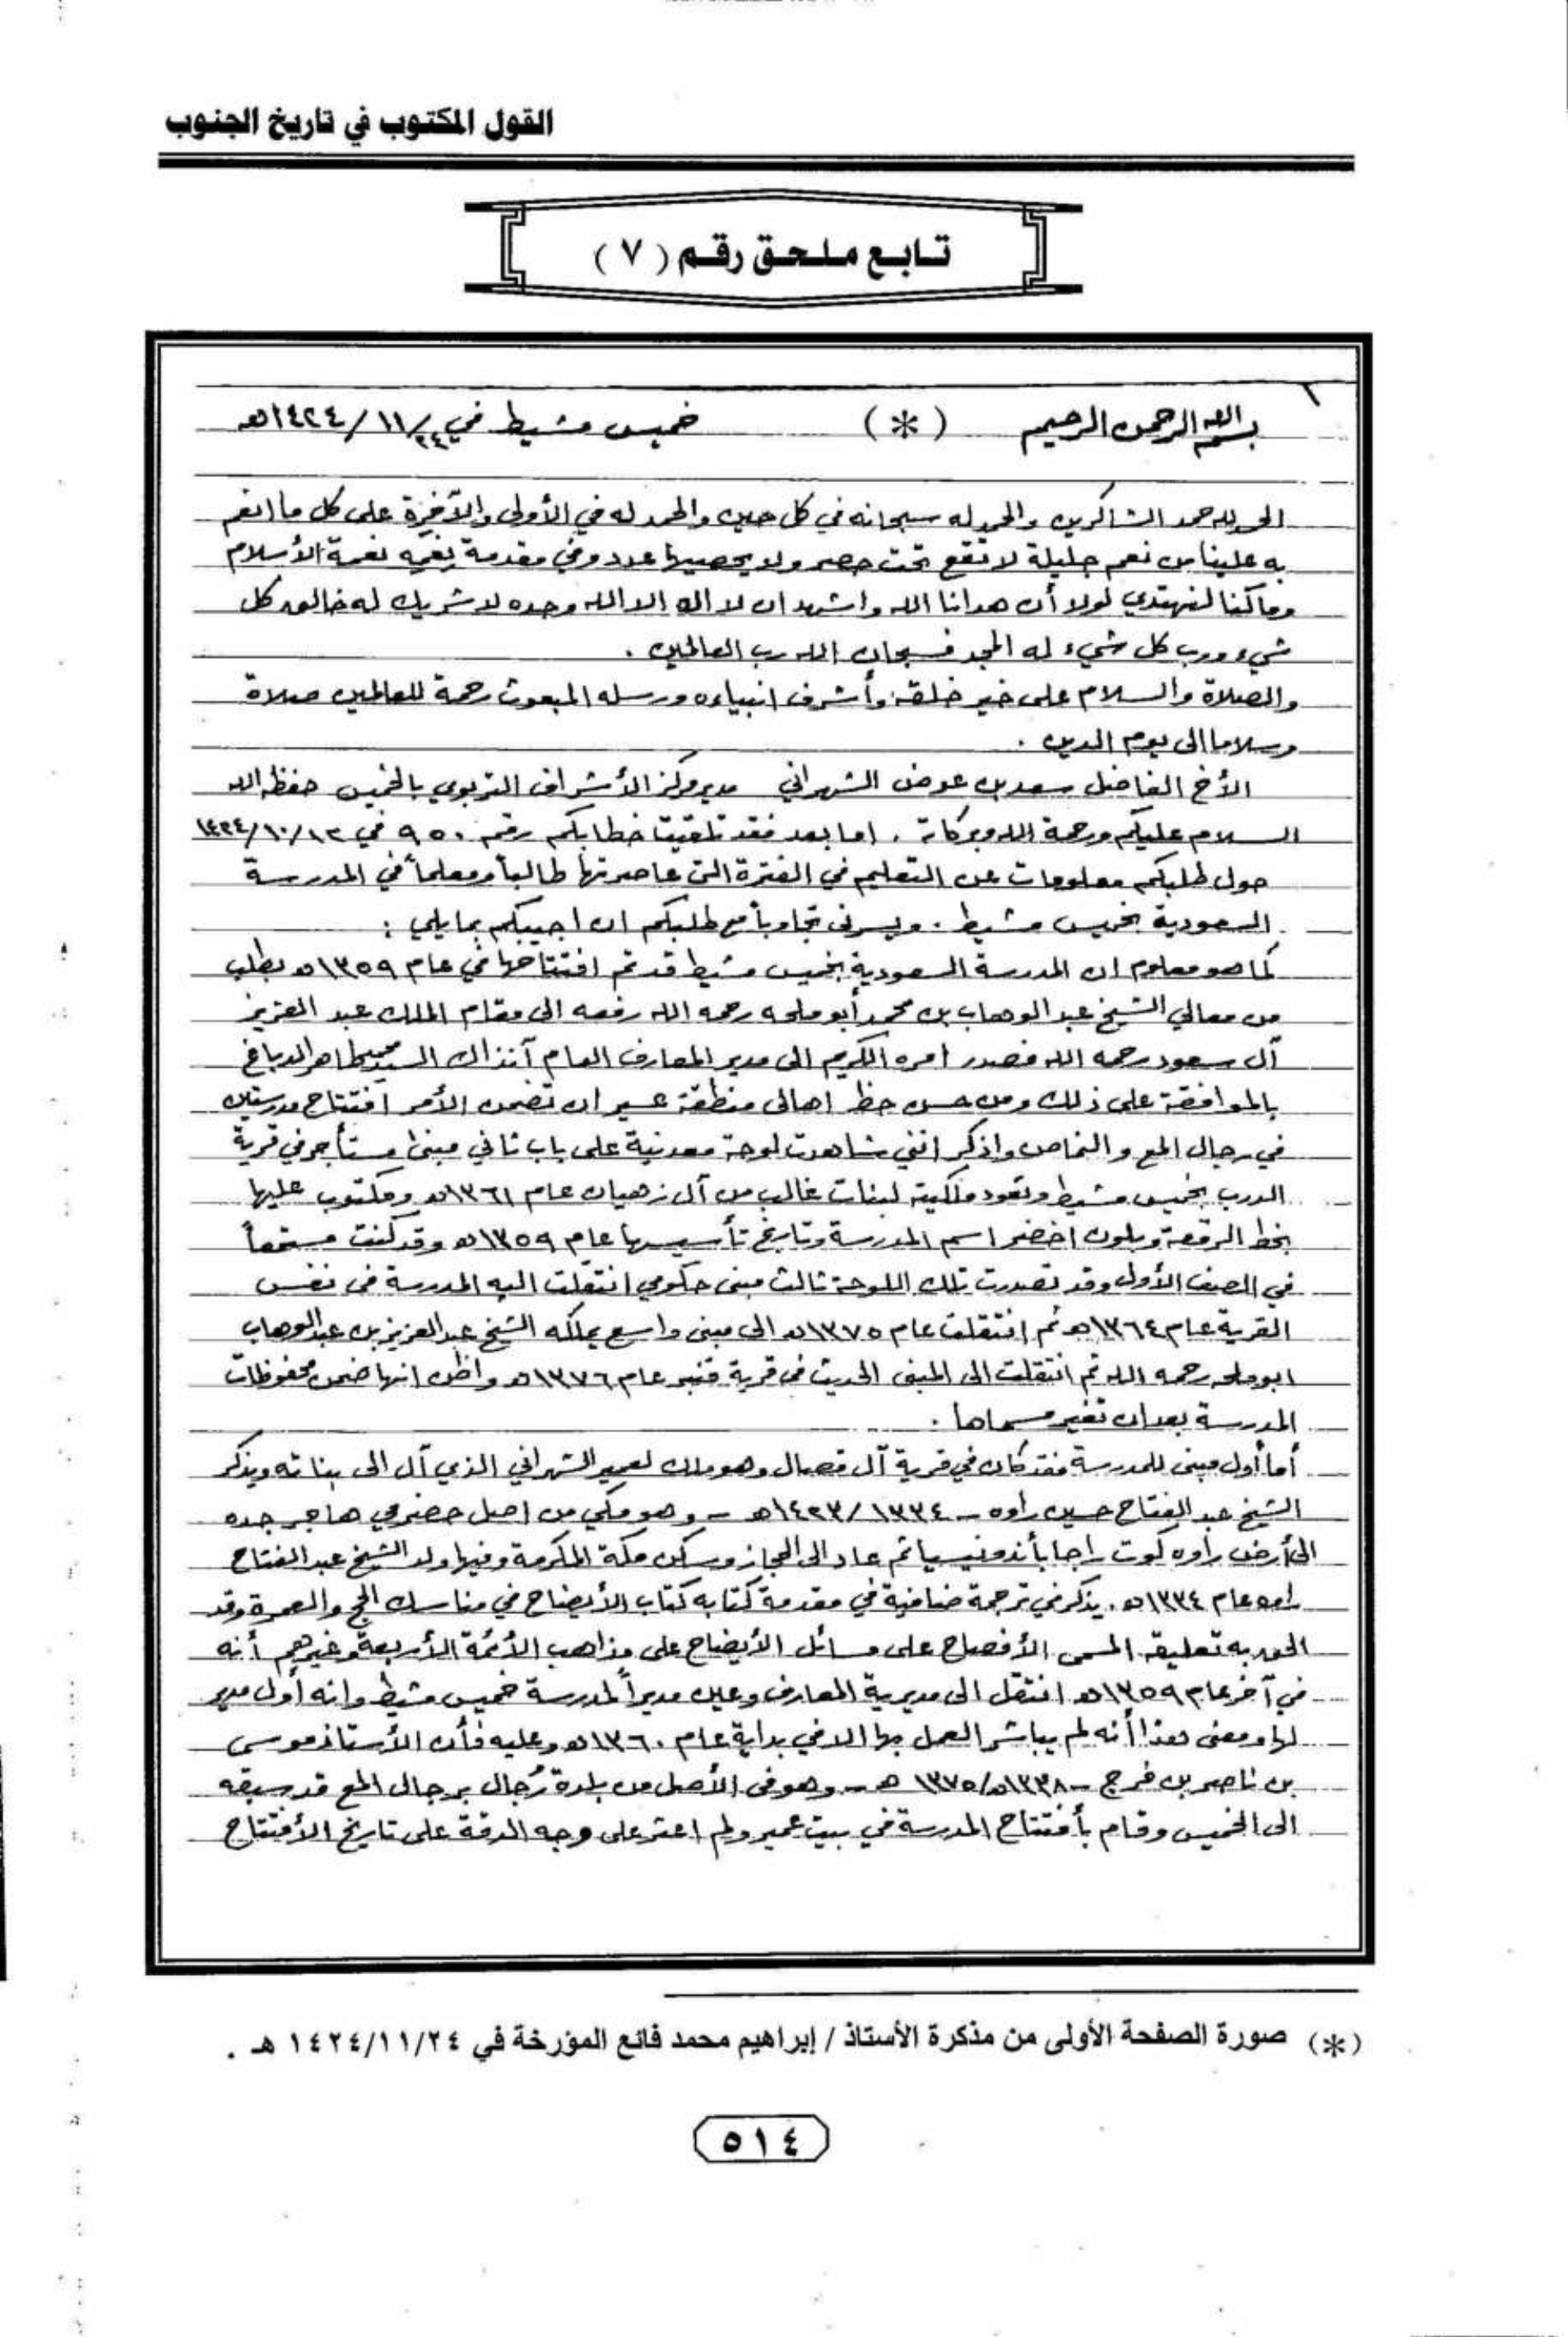 القول المكتوب في تاريخ الجنوب
تابع ملحق رقم ( ٧ )
١
بسم الله الرحمن الرحيم ( * ) خميس مشيط في ٢٤/ ١١/ ١٤٢٤هـ
الحمد لله حمد الشاكرين والحمد له سبحانه في كل حين والحمد له في الأولى والآخرة على كل ما انعم
به علينا من نعم جليلة لا تقع تحت حصر ولا يحصيها عدد وفي مقدمة نعمه نعمة الأسلام
وما كنا لنهتدي لولا أن هدانا الله واشهد ان لا اله الا الله وحده لا شريك له خالق كل
شيء ورب كل شيء له المجد فسبحان الله رب العالمين .
والصلاة والسلام على خير خلقه وأشرف انبياءه ورسله المبعوث رحمة للعالمين صلاة
وسلاما الى يوم الدين .
الأخ الفاضل سعد بن عوض الشهراني مدير مركز الأشراف التربوي بالخميس حفظه الله
السلام عليكم ورحمة الله وبركاته . اما بعد فقد تلقيت خطابكم رقم ٩٥٠ في ١٠/١٣/ ١٤٢٤
حول طلبكم معلومات عن التعليم في الفترة التي عاصرتها طالباً ومعلماً في المدرسة
السعودية بخميس مشيط . ويسرني تجاوباً مع طلبكم ان اجيبكم بما يلي :
كما هو معلوم ان المدرسة السعودية بخميس مشيط قد تم افتتاحها في عام ١٣٥٩هـ بطلب
من معالي الشيخ عبد الوهاب بن محمد أبو ملحه رحمه الله رفعه الى مقام الملك عبد العزيز
آل سعود رحمه الله فصدر امره الكريم الى مدير المعارف العام آنذاك السيد محمد طاهر الدباغ
بالموافقة على ذلك ومن حسن حظ اهالى منطقة عسير ان تضمن الأمر افتتاح مدرستين
في رجال المع والنماص واذكر انني شاهدت لوحة معدنية على باب ثاني مبنى مستأجر في قرية
الدرب بخميس مشيط وتعود ملكيته لبنات غالب من آل زهيان عام ١٣٦١هـ ومكتوب عليها
بخط الرقعة وبلون اخضر اسم المدرسة وتاريخ تأسيسها عام ١٣٥٩هـ وقد كنت مستمعاً
في الصف الأول وقد تصدرت تلك اللوحة ثالث مبنى حكومي انتقلت اليه المدرسة في نفس
القرية عام ١٣٦٤هـ ثم انتقلت عام ١٣٧٥هـ الى مبنى واسع يملكه الشيخ عبد العزيز بن عبد الوهاب
ابو ملحه رحمه الله ثم انتقلت الى المبنى الحديث في قرية قنبر عام ١٣٧٦هـ واظن انها ضمن محفوظات
المدرسة بعد ان تغير مسماها .
أما أول مبنى للمدرسة فقد كان في قرية آل قصال وهو ملك لعمير الشهراني الذي آل الى بناته ويذكر
الشيخ عبد الفتاح حسين راوه – ١٣٣٤/ ١٤٢٣هـ – وهو مكي من اصل حضرمي هاجر جده
الى أرض راوه كوت راجا بأندونيسيا ثم عاد الى الحجاز وسكن مكة المكرمة وفيها ولد الشيخ عبد الفتاح
راوه عام ١٣٣٤هـ . يذكر في ترجمة ضافية في مقدمة كتابه كتاب الأيضاح في مناسك الحج والعمرة وقد
الحق به تعليقه المسمى الأفصاح على مسائل الأيضاح على مذاهب الأئمة الأربعة وغيرهم أنه
في آخر عام ١٣٥٩هـ انتقل الى مديرية المعارف وعين مديراً لمدرسة خميس مشيط وانه أول مدير
لها ومعنى هذا أنه لم يباشر العمل بها الا في بداية عام ١٣٦٠هـ وعليه فأن الأستاذ موسى
بن ناصر بن فرج – ١٣٣٨هـ/ ١٣٧٥ هـ – وهو في الأصل من بلدة رُجال برجال المع قد سبقه
الى الخميس وقام بأفتتاح المدرسة في بيت عمير ولم اعثر على وجه الدقة على تاريخ الأفتتاح
(*) صورة الصفحة الأولى من مذكرة الأستاذ / إبراهيم محمد فائع المؤرخة في ١٤٢٤/١١/٢٤ هـ .
٥١٤